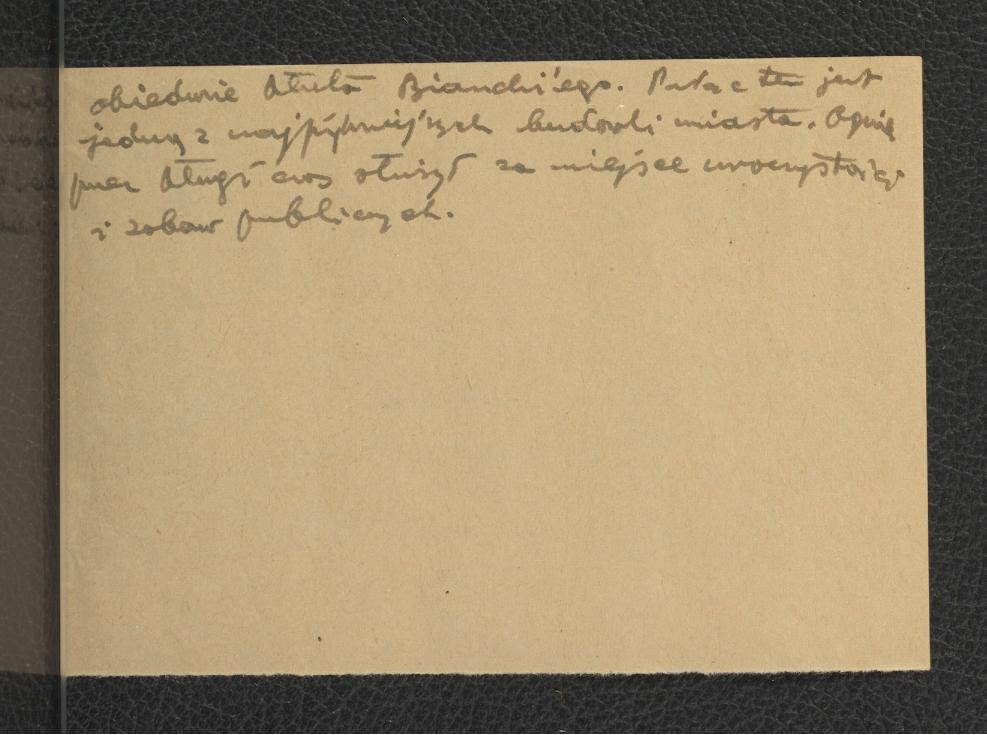 obiedwie dłuta Bianchi'ego. Pałac ten jest
jedną z najpiękniejszych budowli miasta.
przez długi czas służył za miejsce uroczystości
i zabaw publicznych.